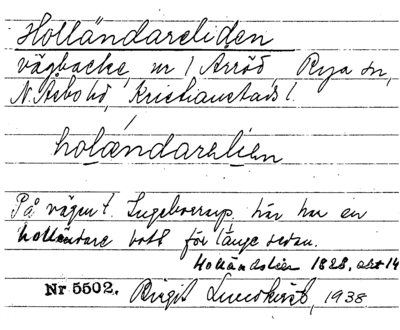 Holländareliden
vägbacke, nr 1 Arröd, Rya sn,
N. Åsbo hd, Kristianstads l.
holændarelien
På vägen t. Ingeborrarp. här har en
holländare bott för länge sedan.
Holländslien 1828, akt 14
Nr 5502. Birgit Lundkvist, 1938